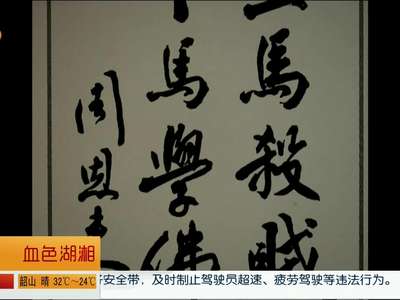 馬殺賊
馬學佛
周恩來
血色湖湘
韶山 晴 32℃~24℃
安全带，及时制止驾驶员超速、疲劳驾驶等违法行为。